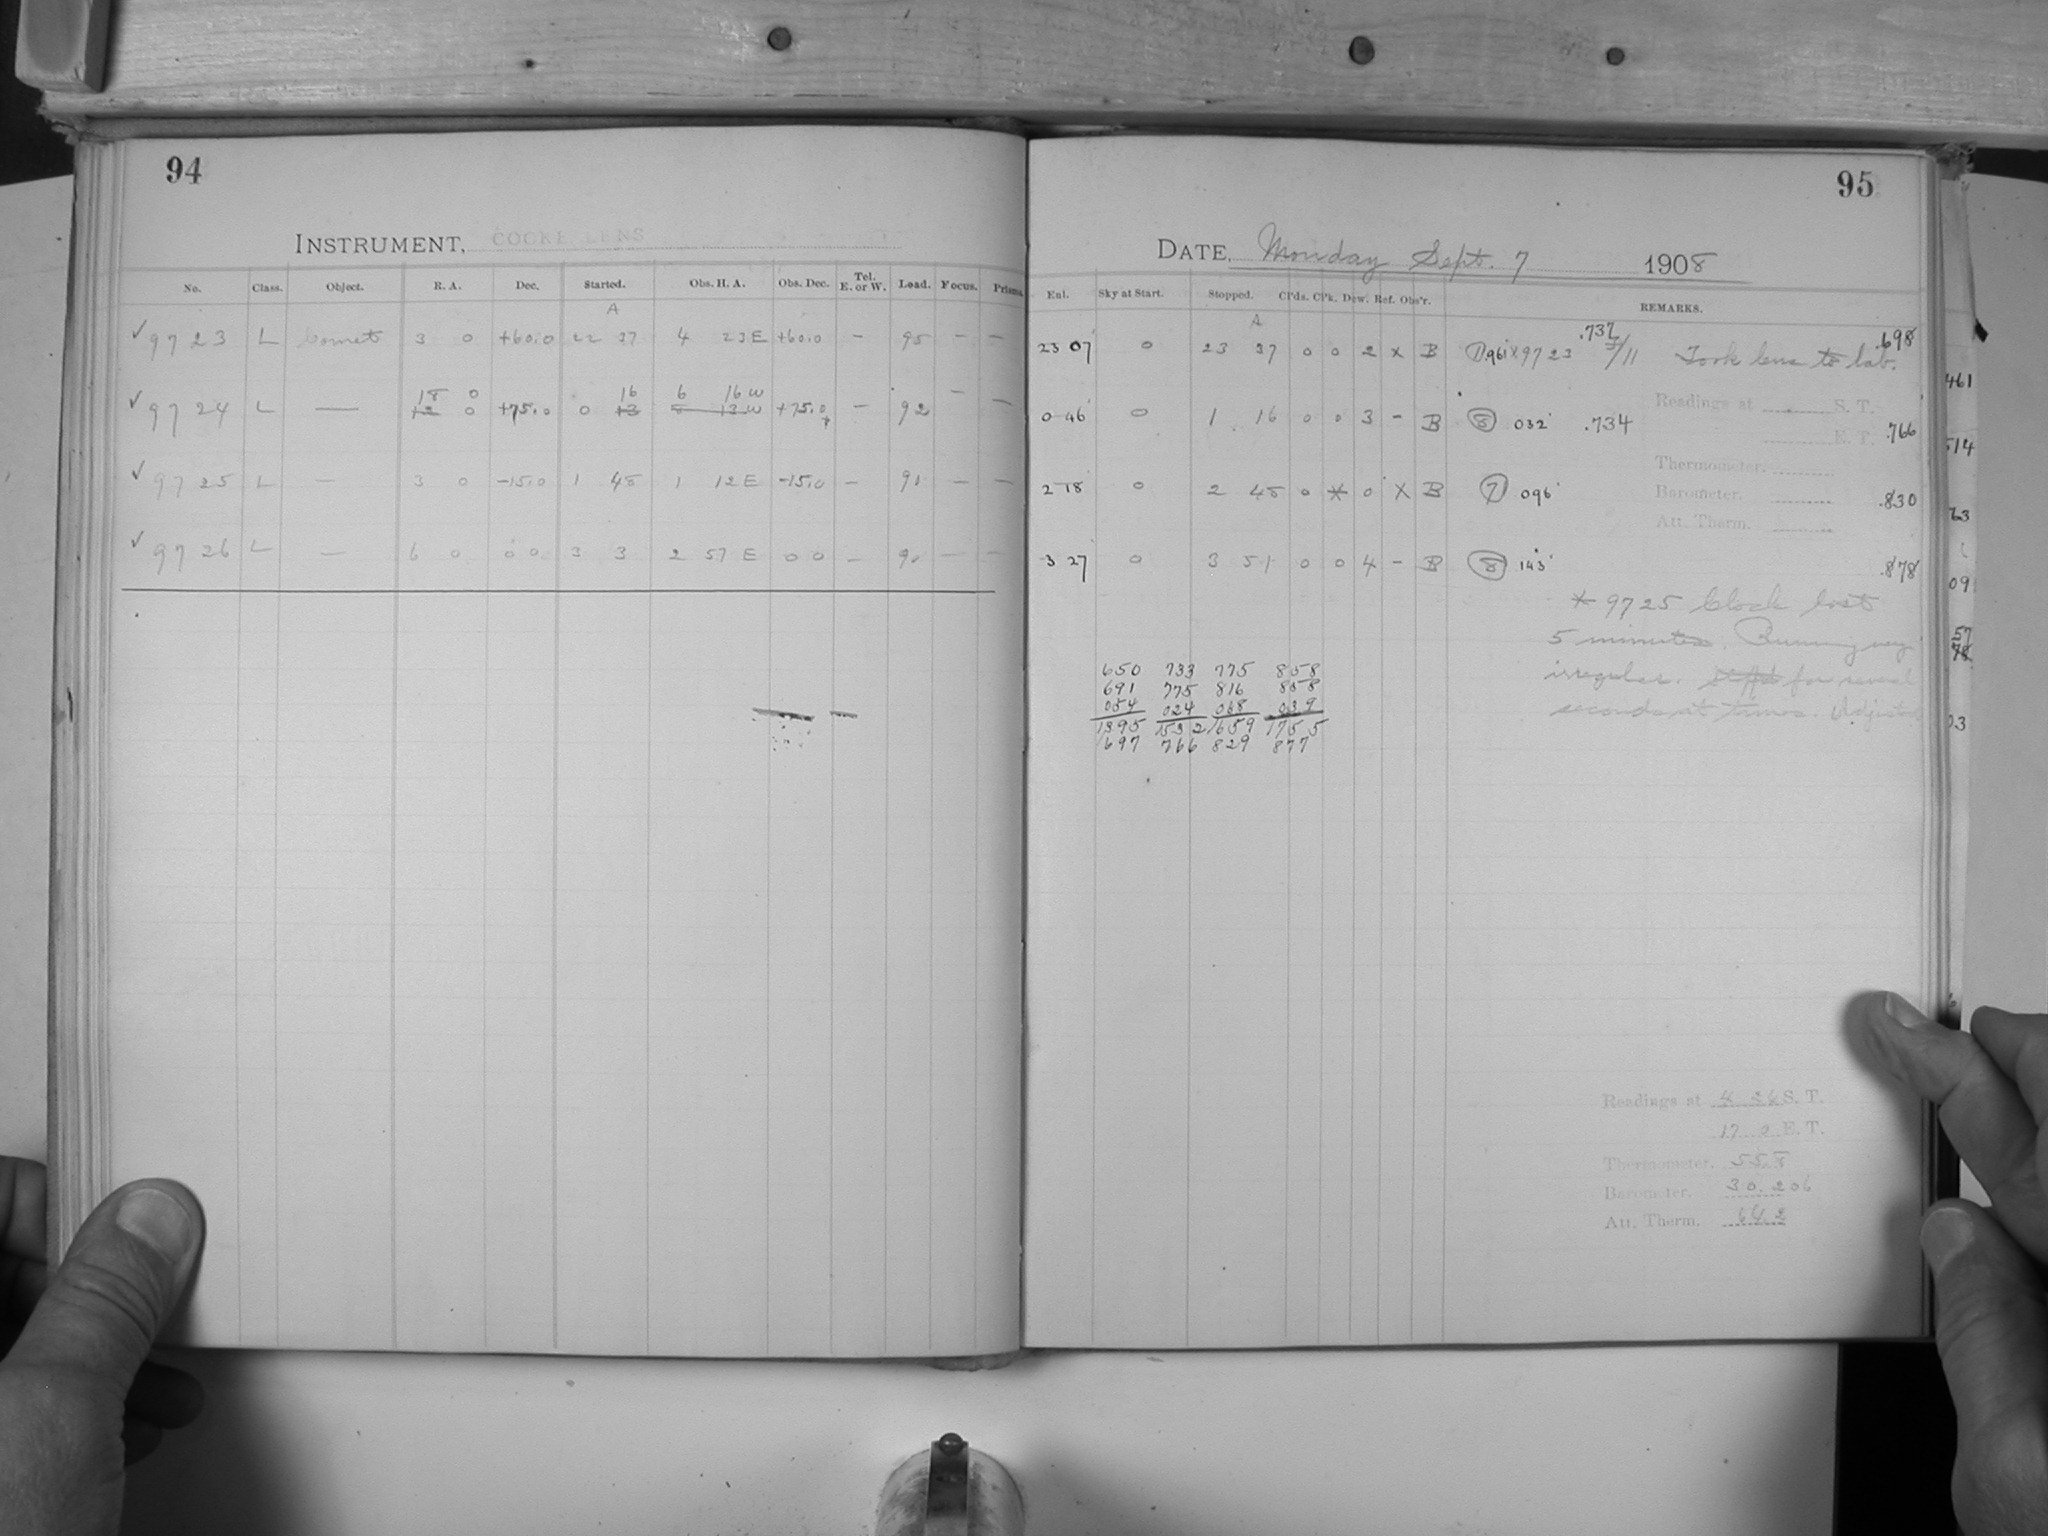 94
INSTRUMENT, COOKE LENS
No. Class. Object. R. A. Dec. Started. Obs. H. A. Obs. Dec. Tel. E. or W. Lead. Focus. Prisms.
A
✓ 9723 L Comet 3 0 +60.0 22 37 4 23 E +60.0 — 95 — —
18 0 16 6 16 W
✓ 9724 L — 12 0 +75.0 0 13 13 W +75.0 — 92 — —
✓ 9725 L — 3 0 -15.0 1 48 1 12 E -15.0 — 91 — —
✓ 9726 L — 6 0 0 0 3 3 2 57 E 0 0 — — —
95
DATE, Monday Sept. 7 1908
Enl. Sky at Start. Stopped. Cl'ds. Cl'k. Dew. Ref. Obs'r. REMARKS.
A
23 07 0 23 37 0 0 2 x B 9723 .737 /11 Took lens to lab. .698
Readings at S. T.
0 46 0 1 16 0 0 3 - B 8 032 .734 E. T. .766
Thermometer.
2 18 0 2 48 0 * 0 X B 7 096 Barometer. .830
Att. Therm.
3 27 0 3 51 0 0 4 - B 8 143 .878
* 9725 Clock lost
5 minutes. Running very
irregular. for several
seconds at times. Adjusted
650 733 775 858
691 775 816 858
054 024 068 039
1395 1532 1659 1755
697 766 829 877
Readings at 4 26 S. T.
17 0 E. T.
Thermometer. 55.8
Barometer. 30.206
Att. Therm. 64.2
461
514
63
09
57
78
03